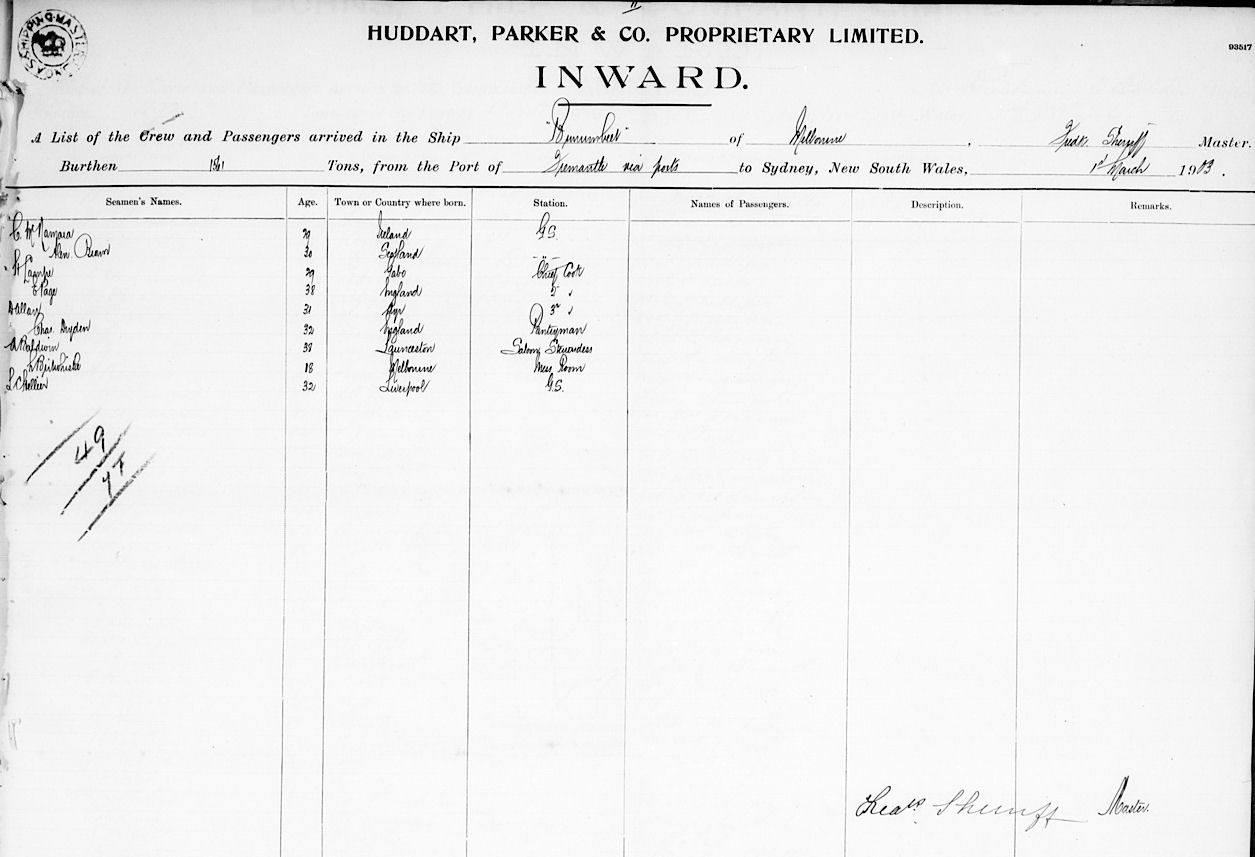 SHIPPING MASTER
11
HUDDART, PARKER & CO. PROPRIETARY LIMITED.
93517
INWARD.
A List of the Crew and Passengers arrived in the Ship "Burrumbeet" of Melbourne, Fredk. Sherriff Master.
Burthen Tons, from the Port of Fremantle via ports to Sydney, New South Wales, 1st March 1903.
Seamen's Names. Age. Town or Country where born. Station. Names of Passengers. Description. Remarks.
C McNamara 29 Ireland G.S.
Alen. Brown 30 Scotland - " -
29 Gabo Chief Cook
E Page 38 England 2nd "
D Allan 31 Ayr 3rd "
Chas. Dryden 32 England Pantryman
A Baldwin 38 Launceston Saloon Stewardess
18 Melbourne Mess Room
32 Liverpool G.S.
49
Fredk Sherriff Master.